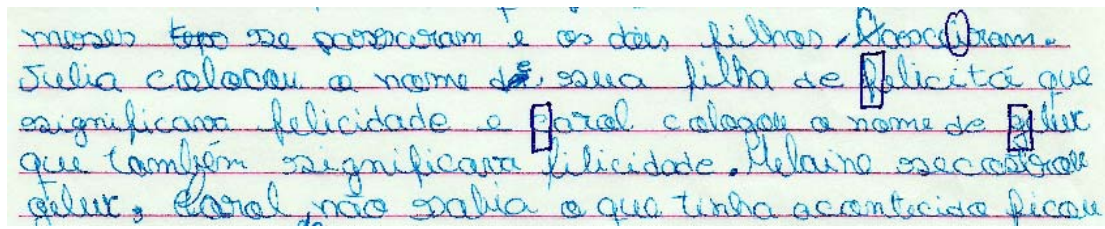 meses se passaram e os dois filhos, nasciram.
Julia colocou o nome de sua filha de felicitá que
significava felicidade e Carol colocou o nome de gelux
que também significava filicidade. Melaine
gelux, Carol não sabia o que tinha acontecido ficou